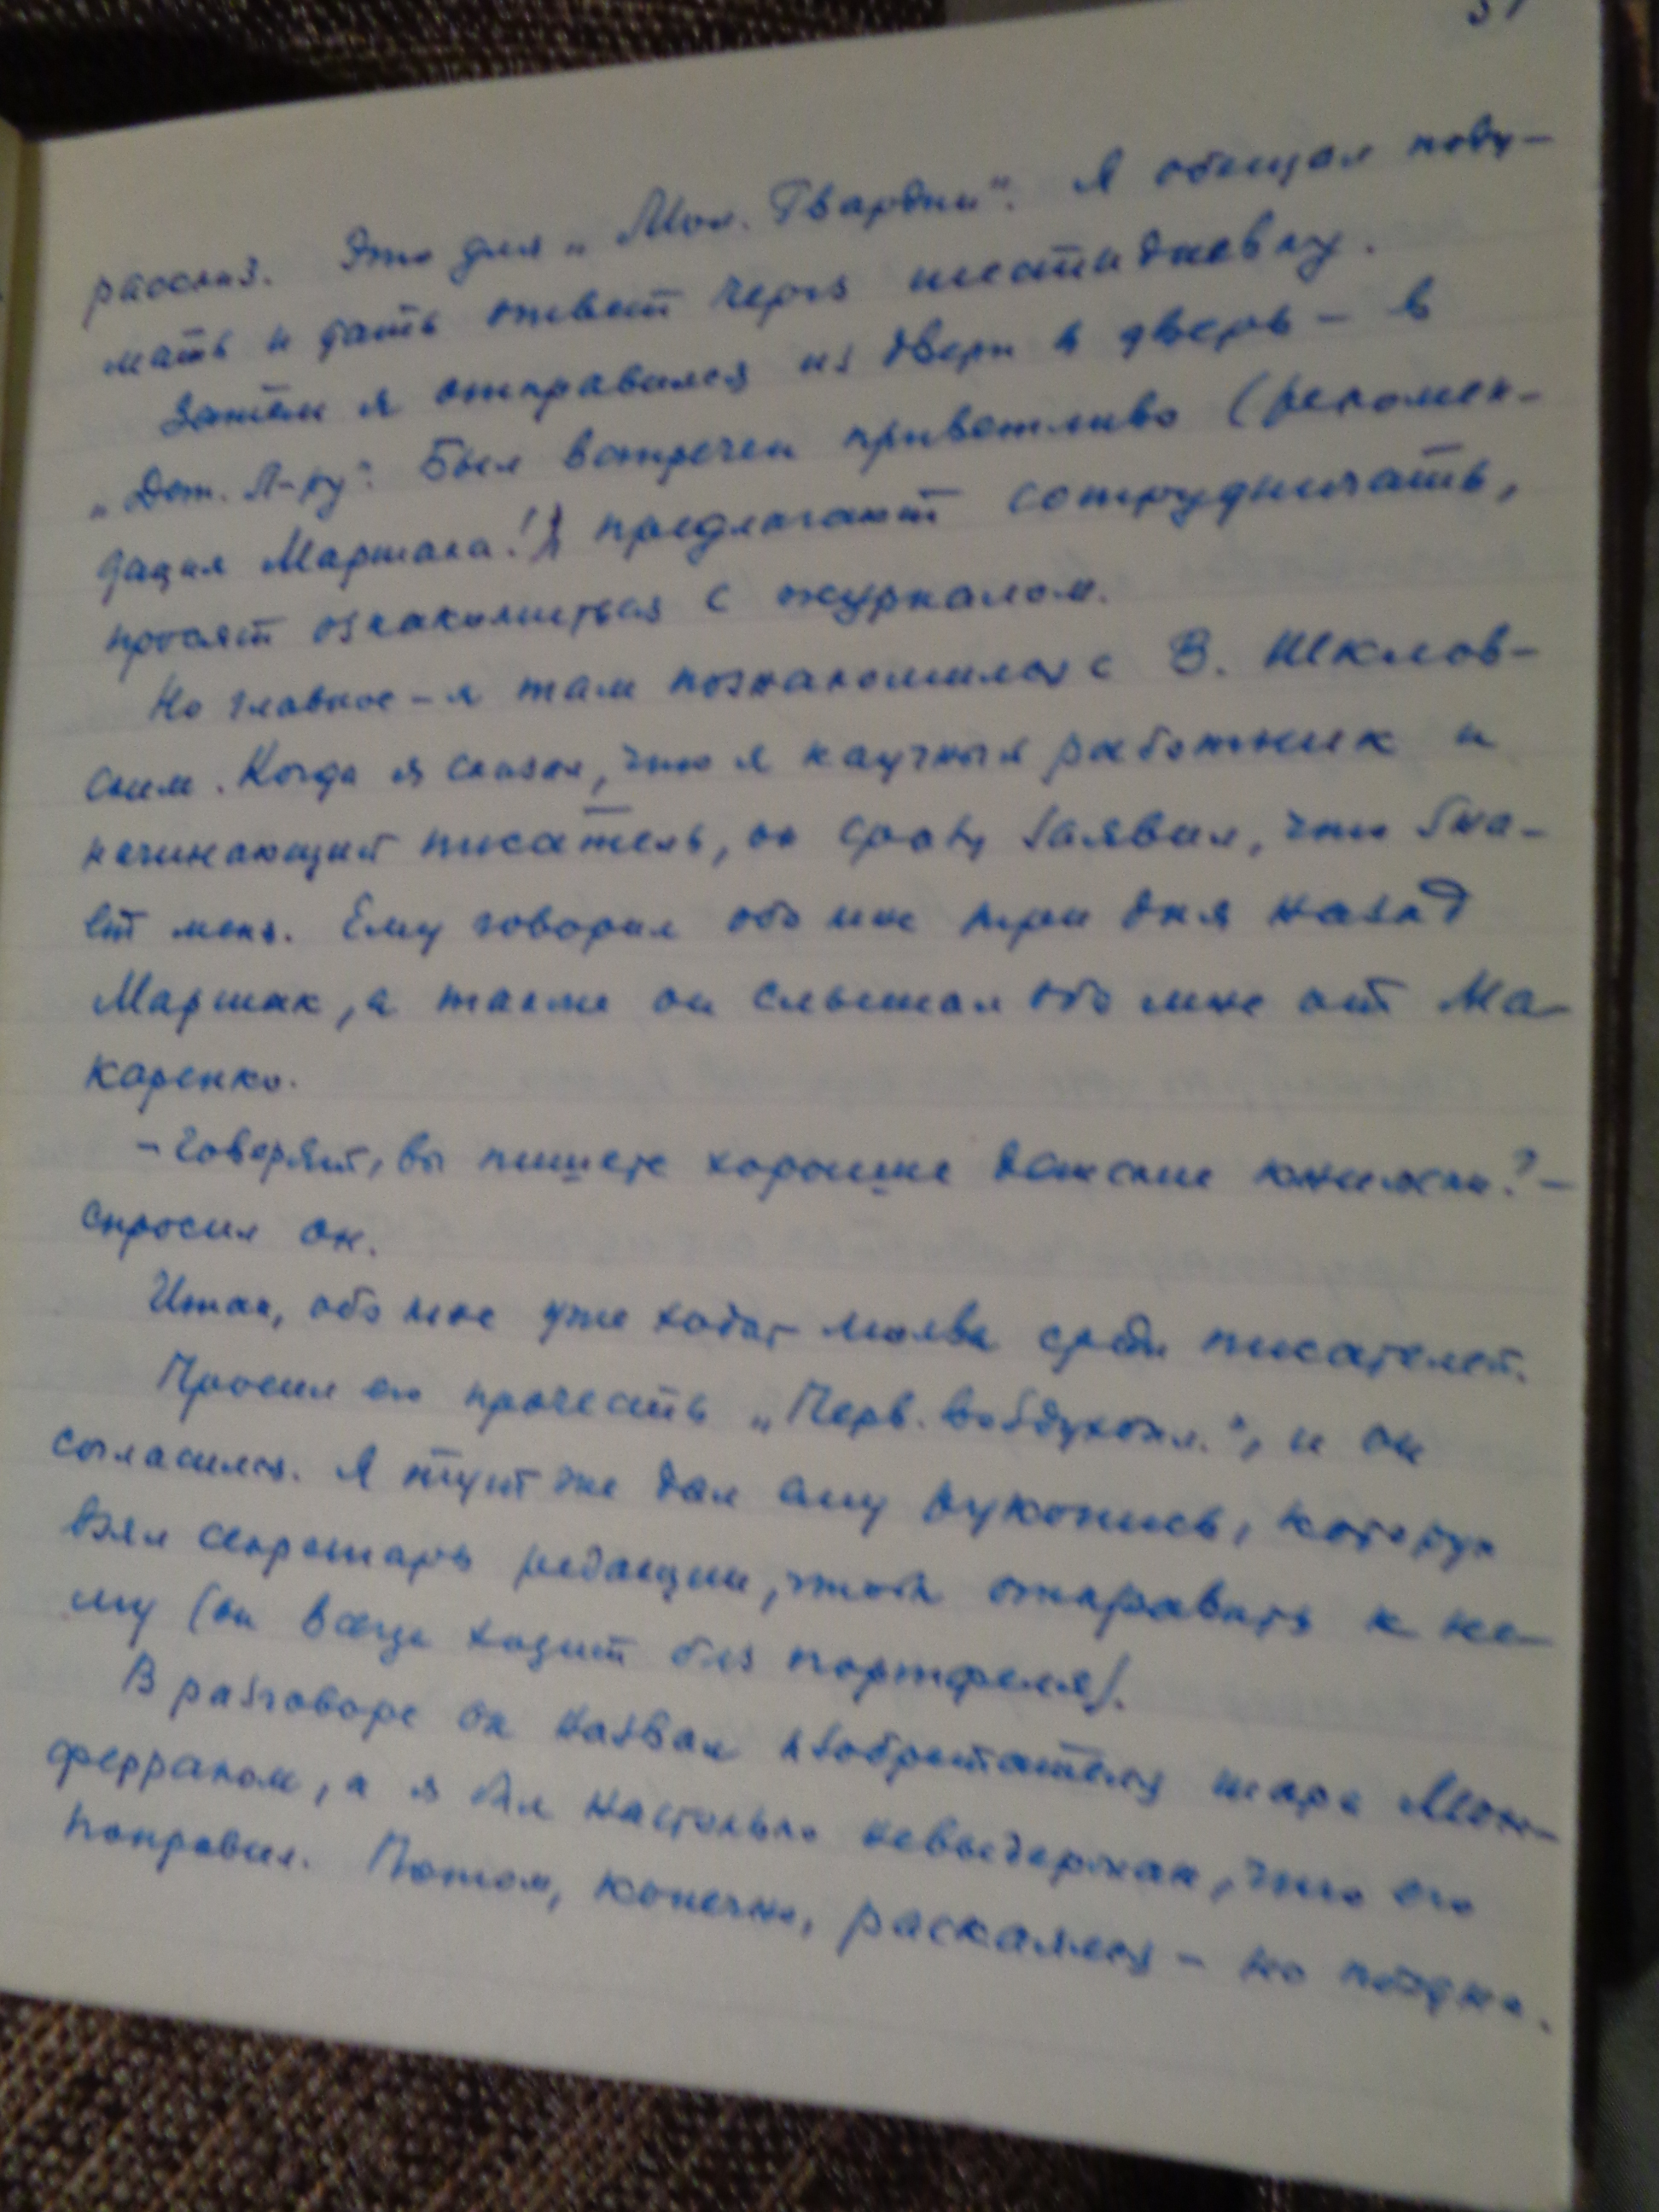 рассказ. Это для „Мол. Гвардии". Я обещал поду-
мать и дать ответ через шестидневку.
Затем я отправился из двери в дверь – в
„Дет. Л-ру". Был встречен приветливо (рекомен-
дация Маршака!) предлагают сотрудничать,
просят ознакомиться с журналом.
Но главное – я там познакомился с В. Шклов-
ским. Когда я сказал, что я научный работник и
начинающий писатель, он сразу заявил, что зна-
ет меня. Ему говорил обо мне три дня назад
Маршак, а также он слышал обо мне от Ма-
каренко.
– Говорят, вы пишете хорошие детские книжки? –
спросил он.
Итак, обо мне уже ходит молва среди писателей.
Просил его прочесть „Перв. воздухопл.", и он
согласился. Я тут же дал ему рукопись, которую
взял секретарь редакции, чтобы отправить к не-
му (он всегда ходит без портфеля).
В разговоре он назвал изобретателя шара Мон-
ферраном, а я был настолько невыдержан, что его
поправил. Потом, конечно, раскаялся – но поздно.